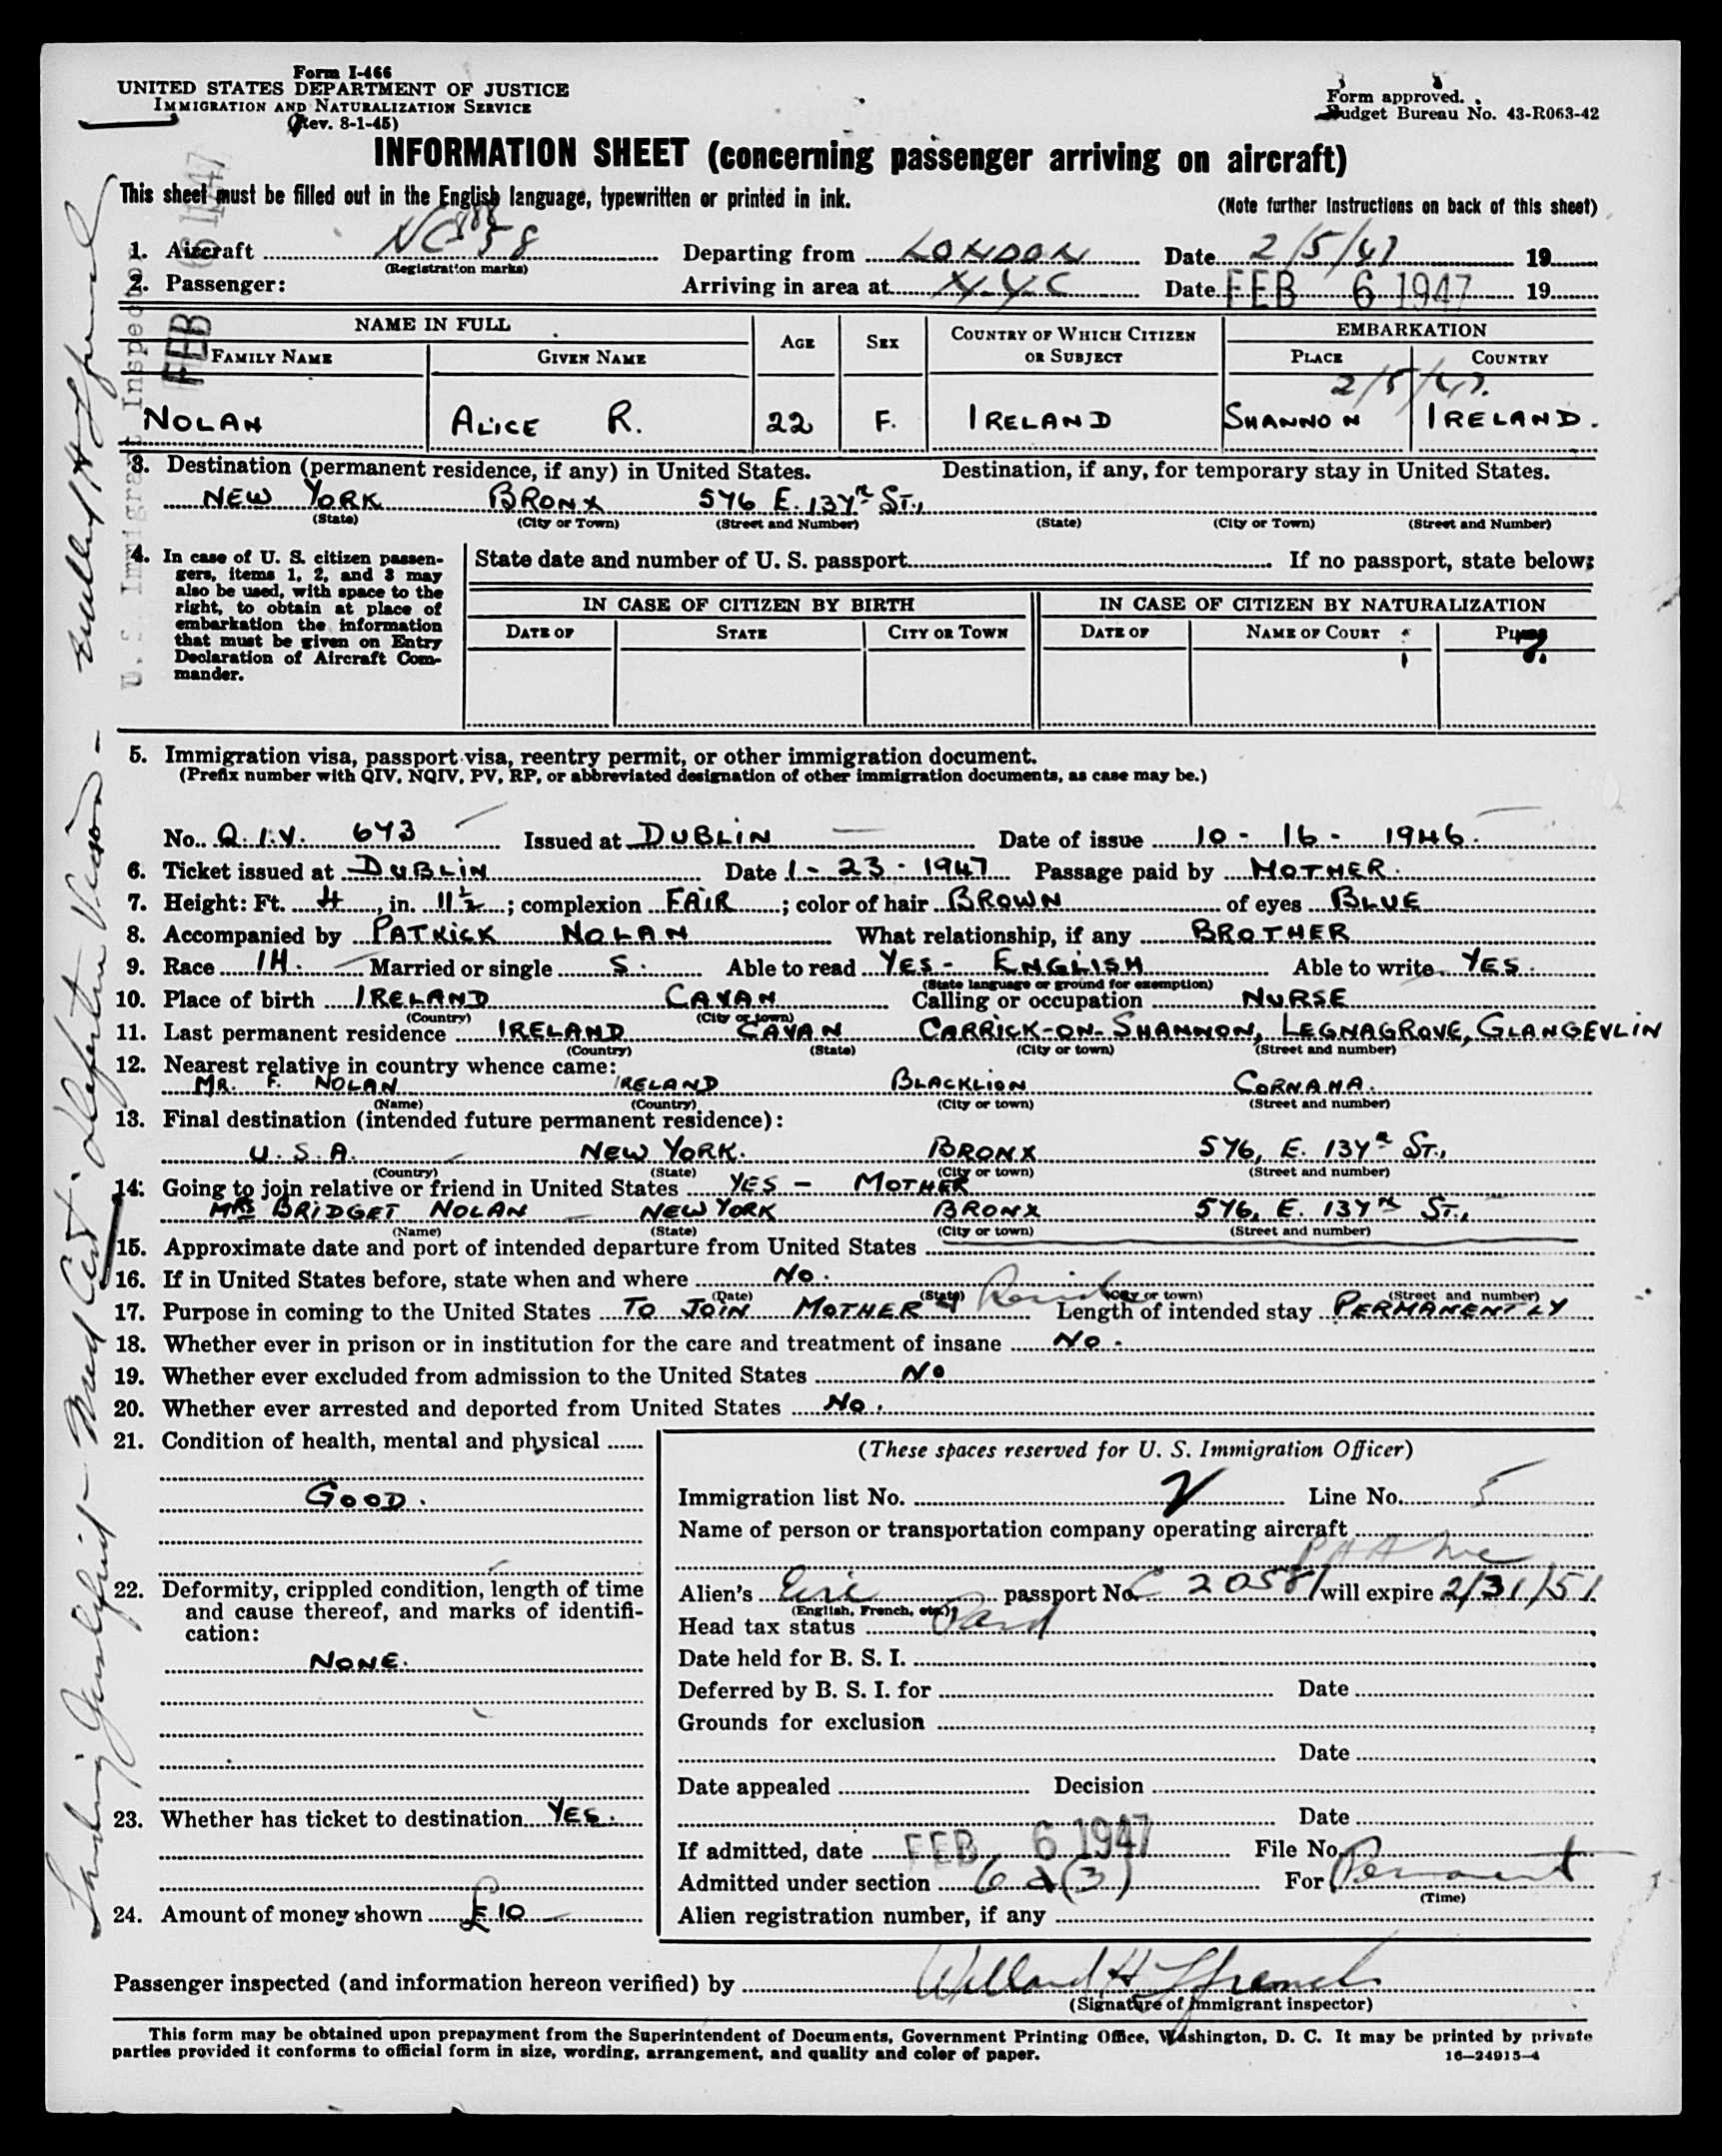 Form I-466
UNITED STATES DEPARTMENT OF JUSTICE
IMMIGRATION AND NATURALIZATION SERVICE
(Rev. 8-1-45)
Form approved.
Budget Bureau No. 43-R063-42
INFORMATION SHEET (concerning passenger arriving on aircraft)
This sheet must be filled out in the English language, typewritten or printed in ink.
(Note further instructions on back of this sheet)
1. Aircraft NC 88858 Departing from LONDON Date 2/5/47 19
(Registration marks)
2. Passenger: Arriving in area at N.Y.C Date FEB 6 1947 19
NAME IN FULL AGE SEX COUNTRY OF WHICH CITIZEN OR SUBJECT EMBARKATION
FAMILY NAME GIVEN NAME PLACE COUNTRY
2/5/47.
NOLAN ALICE R. 22 F. IRELAND SHANNON IRELAND.
3. Destination (permanent residence, if any) in United States. Destination, if any, for temporary stay in United States.
NEW YORK BRONX 576 E. 137 ST.,
(State) (City or Town) (Street and Number) (State) (City or Town) (Street and Number)
4. In case of U. S. citizen passengers, items 1, 2, and 3 may also be used, with space to the right, to obtain at place of embarkation the information that must be given on Entry Declaration of Aircraft Commander.
State date and number of U. S. passport If no passport, state below:
IN CASE OF CITIZEN BY BIRTH IN CASE OF CITIZEN BY NATURALIZATION
DATE OF STATE CITY OR TOWN DATE OF NAME OF COURT PLACE
5. Immigration visa, passport visa, reentry permit, or other immigration document.
(Prefix number with QIV, NQIV, PV, RP, or abbreviated designation of other immigration documents, as case may be.)
No. Q.I.V. 673 Issued at DUBLIN Date of issue 10 - 16 - 1946.
6. Ticket issued at DUBLIN Date 1 - 23 - 1947 Passage paid by MOTHER.
7. Height: Ft. 4, in. 11½; complexion FAIR; color of hair BROWN of eyes BLUE
8. Accompanied by PATRICK NOLAN What relationship, if any BROTHER
9. Race IH. Married or single S. Able to read YES - ENGLISH Able to write YES.
(State language or ground for exemption)
10. Place of birth IRELAND CAVAN Calling or occupation NURSE
(Country) (City or town)
11. Last permanent residence IRELAND CAVAN CARRICK-ON-SHANNON, LEGNAGROVE, GLANGEVLIN
(Country) (State) (City or town) (Street and number)
12. Nearest relative in country whence came:
MR. F. NOLAN IRELAND BLACKLION CORNAHA.
(Name) (Country) (City or town) (Street and number)
13. Final destination (intended future permanent residence):
U.S.A. NEW YORK. BRONX 576, E. 137 ST.,
(Country) (State) (City or town) (Street and number)
14. Going to join relative or friend in United States YES - MOTHER
MRS BRIDGET NOLAN NEW YORK BRONX 576, E. 137 ST.,
(Name) (State) (City or town) (Street and number)
15. Approximate date and port of intended departure from United States
16. If in United States before, state when and where NO.
(Date) (State) (City or town) (Street and number)
17. Purpose in coming to the United States TO JOIN MOTHER & Reside Length of intended stay PERMANENTLY
18. Whether ever in prison or in institution for the care and treatment of insane NO.
19. Whether ever excluded from admission to the United States NO
20. Whether ever arrested and deported from United States NO.
21. Condition of health, mental and physical
GOOD.
22. Deformity, crippled condition, length of time and cause thereof, and marks of identification:
NONE.
23. Whether has ticket to destination YES.
24. Amount of money shown £10
(These spaces reserved for U. S. Immigration Officer)
Immigration list No. 2 Line No. 5
Name of person or transportation company operating aircraft
PAA Inc
Alien's Eire passport No. C 20581 will expire 2/31/51
(English, French, etc.)
Head tax status Paid
Date held for B. S. I.
Deferred by B. S. I. for Date
Grounds for exclusion
Date
Date appealed Decision
Date
If admitted, date FEB 6 1947 File No.
Admitted under section 6 a (3) For Permanent
(Time)
Alien registration number, if any
Passenger inspected (and information hereon verified) by Willard H
(Signature of immigrant inspector)
This form may be obtained upon prepayment from the Superintendent of Documents, Government Printing Office, Washington, D. C. It may be printed by private
parties provided it conforms to official form in size, wording, arrangement, and quality and color of paper. 16—24915-4
Landing Justified - Med Cert. Defective Vision -
U. S. Immigrant Inspector
FEB 6 1947